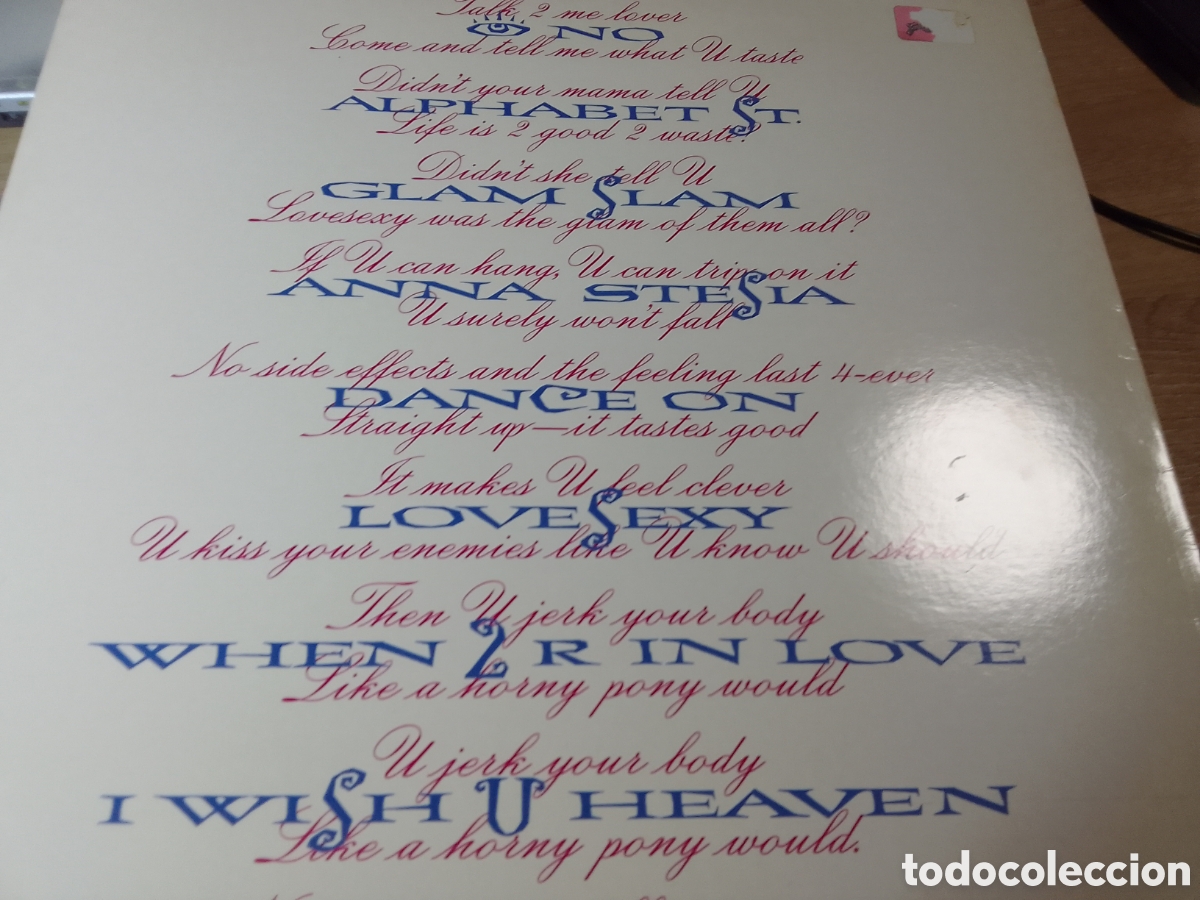 Talk 2 me lover
NO
Come and tell me what U taste
Didn't your mama tell U
ALPHABET ST.
Life is 2 good 2 waste?
Didn't she tell U
GLAM SLAM
Lovesexy was the glam of them all?
If U can hang, U can trip on it
ANNA STESIA
U surely won't fall
No side effects and the feeling last 4-ever
DANCE ON
Straight up—it tastes good
It makes U feel clever
LOVESEXY
U kiss your enemies like U know U should
Then U jerk your body
WHEN 2 R IN LOVE
Like a horny pony would
U jerk your body
I WISH U HEAVEN
Like a horny pony would.
todocoleccion